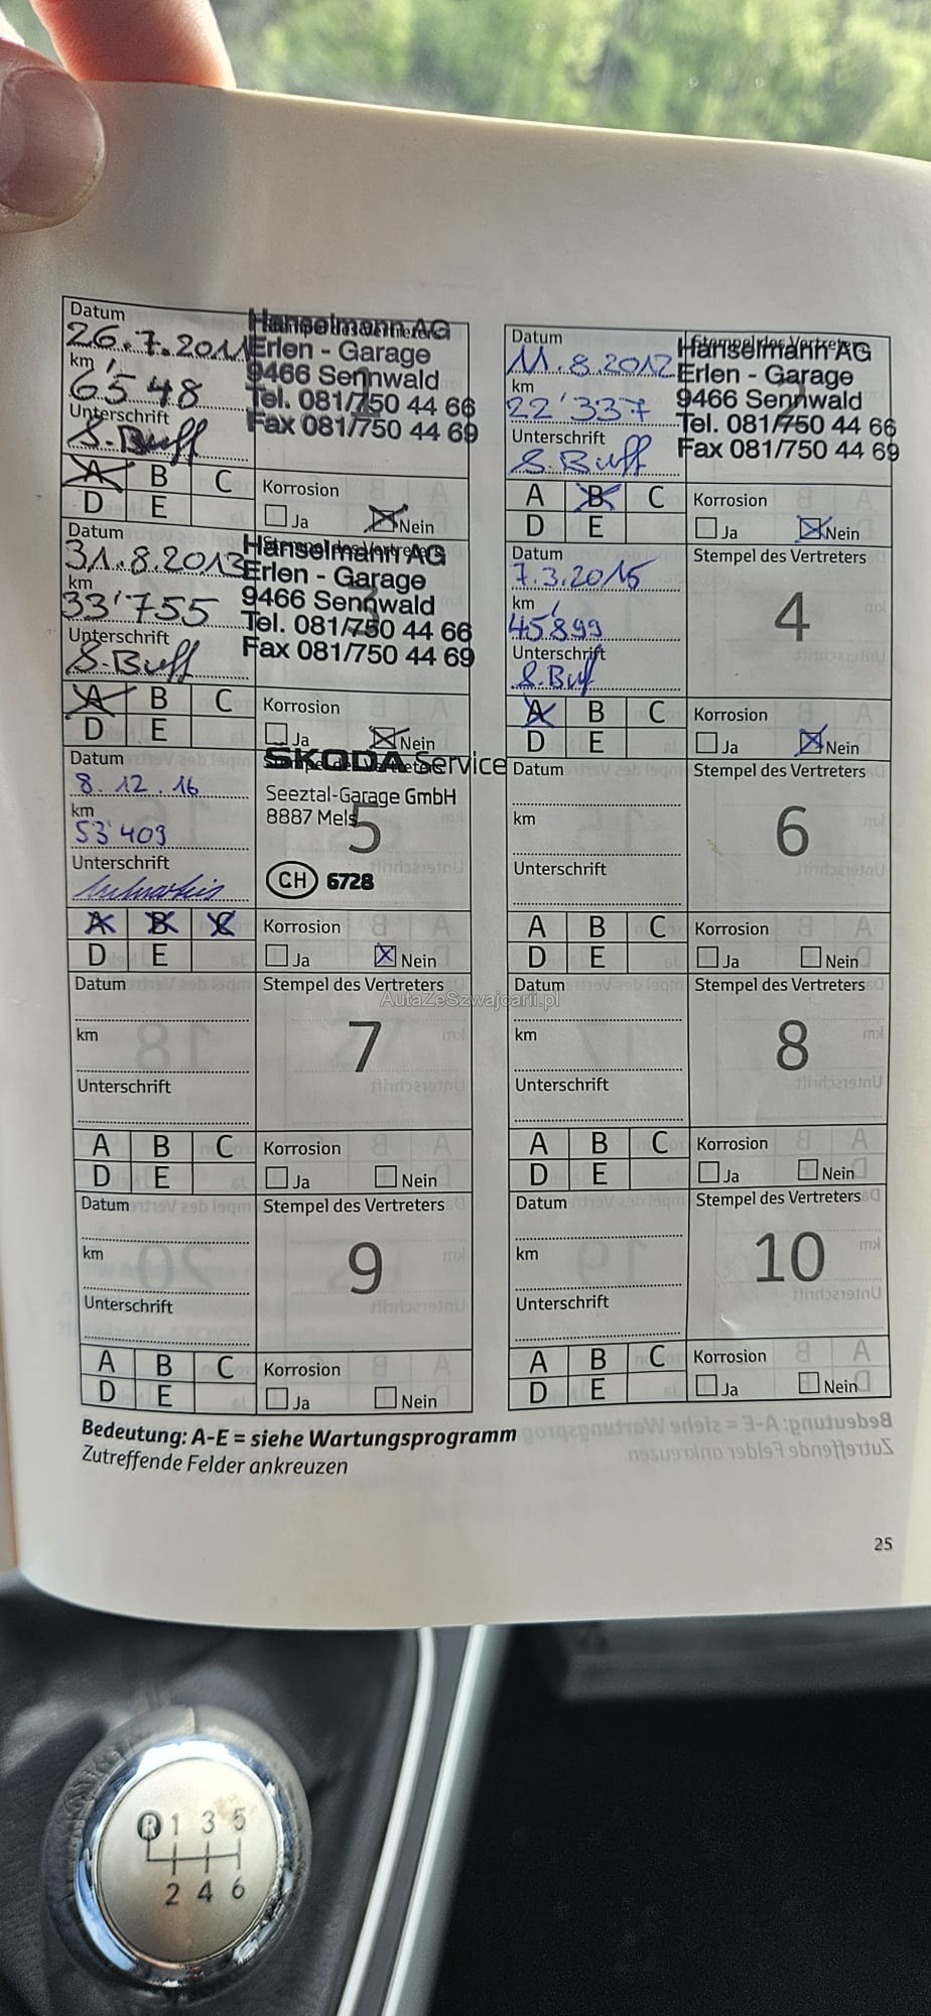 Datum
26.7.2011
km
6'548
Unterschrift
S.Buff
Hanselmann AG
Erlen - Garage
9466 Sennwald
Tel. 081/750 44 66
Fax 081/750 44 69
A B C
D E
Korrosion
Ja Nein
Datum
11.8.2012
km
22'337
Unterschrift
S.Buff
Stempel des Vertreters
Hanselmann AG
Erlen - Garage
9466 Sennwald
Tel. 081/750 44 66
Fax 081/750 44 69
2
A B C
D E
Korrosion
Ja Nein
Datum
31.8.2013
km
33'755
Unterschrift
S.Buff
Hanselmann AG
Erlen - Garage
9466 Sennwald
Tel. 081/750 44 66
Fax 081/750 44 69
A B C
D E
Korrosion
Ja Nein
Datum
7.3.2015
km
45'899
Unterschrift
S.Buf
Stempel des Vertreters
4
A B C
D E
Korrosion
Ja Nein
Datum
8.12.16
km
53'409
Unterschrift
ŠKODA Service
Seeztal-Garage GmbH
8887 Mels
5
CH 6728
A B C
D E
Korrosion
Ja Nein
Datum
km
Unterschrift
Stempel des Vertreters
6
A B C
D E
Korrosion
Ja Nein
Datum
km
Unterschrift
Stempel des Vertreters
AutaZeSzwajcarii.pl
7
A B C
D E
Korrosion
Ja Nein
Datum
km
Unterschrift
Stempel des Vertreters
8
A B C
D E
Korrosion
Ja Nein
Datum
km
Unterschrift
Stempel des Vertreters
9
A B C
D E
Korrosion
Ja Nein
Datum
km
Unterschrift
Stempel des Vertreters
10
A B C
D E
Korrosion
Ja Nein
Bedeutung: A-E = siehe Wartungsprogramm
Zutreffende Felder ankreuzen
25
R 1 3 5
2 4 6